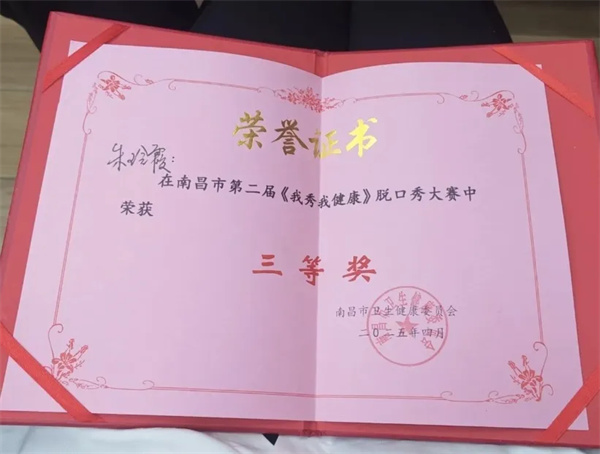 荣誉证书
朱玲霞：
在南昌市第二届《我秀我健康》脱口秀大赛中
荣获
三等奖
南昌市卫生健康委员会
二〇二五年四月